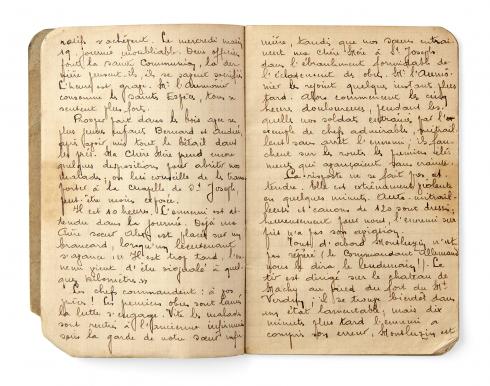 natifs s'achèvent. Le mercredi matin
19 journée inoubliable. Deux officiers
font la sainte Communion, la der-
nière pensent-ils, ils se savent sacrifiés
L'heure est grave. M. l'aumônier
consomme les saintes Espèces, tous se
sentent plus forts.
Roger part dans les bois avec ses
plus jeunes enfants Bernard et André,
après avoir mis tout le bétail dans
les prés. Ma Chère Mère prend encore
quelques dispositions pour abriter nos
malades, on lui conseille de les trans-
porter à la chapelle de St Joseph
peut-être moins exposée.
Il est 10 heures. L'ennemi est at-
tendu dans la journée. Déjà ma
Chère sœur Alex est placée sur un
brancard, lorsqu'un lieutenant
s'avance : « Il est trop tard, l'en-
nemi vient d'être signalé à quel-
ques kilomètres »
Les chefs commandent : à vos
pièces ! Les premiers obus sont lancés
la lutte s'engage. Vite les malades
sont rentrés à l'ancienne infirmerie
sous la garde de notre sœur infir
mière, tandis que nos sœurs entraî-
nent ma Chère Mère à St Joseph
dans l'ébranlement formidable de
l'éclatement des obus. M. l'Aumô-
nier les rejoint quelques instants plus
tard. Alors commencent les cinq
heures douloureuses, pendant les-
quelles nos soldats entraînés par l'ex-
emple de chefs admirables, mitrail-
lent sans arrêt l'ennemi ; ils fau-
chent sur la route les premiers élé-
ments qui avançaient sans crainte.
La riposte ne se fait pas at-
tendre. Elle est extrêmement violente
en quelques minutes. Auto-mitrail-
leuses et canons de 120 sont dressés,
heureusement pour nous, l'ennemi ne
fait pas son aviation.
Tout d'abord Montluzin n'est
pas repéré (le Commandant Allemand
nous le dira le lendemain). Le
tir est dirigé sur le château de
Machy au pied du fort du Mt
Verdun ; il se trouve bientôt dans
un état lamentable, mais dix
minutes plus tard l'ennemi a
compris son erreur, Montluzin est